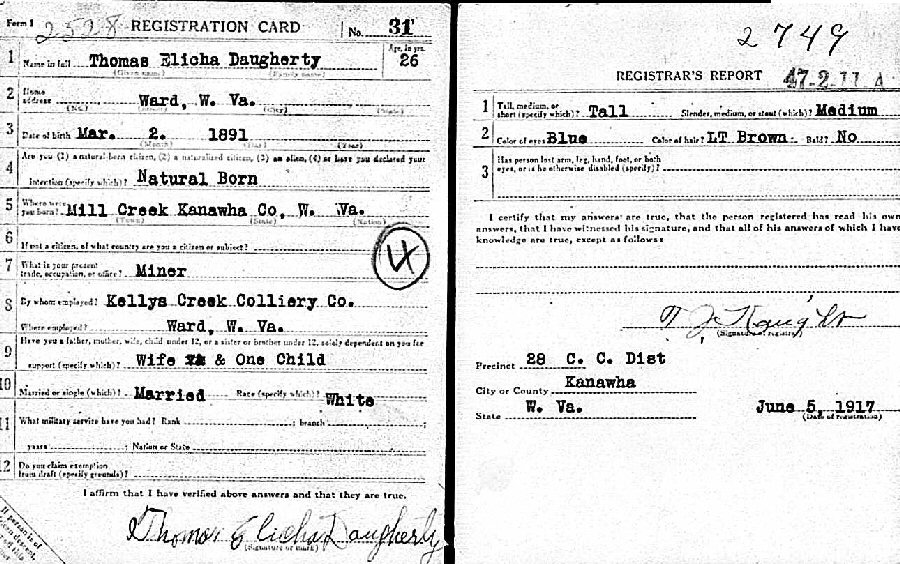 Form 1 2528 REGISTRATION CARD No. 31
1 Name in full Thomas Elicha Daugherty Age, in yrs. 26
(Given name) (Family name)
2 Home address Ward, W. Va.
(No.) (City) (State)
3 Date of birth Mar. 2. 1891
(Month) (Day) (Year)
4 Are you (1) a natural-born citizen, (2) a naturalized citizen, (3) an alien, (4) or have you declared your
intention (specify which)? Natural Born
5 Where were you born? Mill Creek Kanawha Co, W. Va.
(Town) (State) (Nation)
6 If not a citizen, of what country are you a citizen or subject?
4
7 What is your present trade, occupation, or office? Miner
8 By whom employed? Kellys Creek Colliery Co.
Where employed? Ward, W. Va.
9 Have you a father, mother, wife, child under 12, or a sister or brother under 12, solely dependent on you for
support (specify which)? Wife & One Child
10 Married or single (which)? Married Race (specify which)? White
11 What military service have you had? Rank ; branch ;
years ; Nation or State
12 Do you claim exemption from draft (specify grounds)?
I affirm that I have verified above answers and that they are true.
Thomas Elicha Daugherty
(Signature or mark)
If person is of
2749
REGISTRAR'S REPORT 47-2-11 A
1 Tall, medium, or short (specify which)? Tall Slender, medium, or stout (which)? Medium
2 Color of eyes Blue Color of hair? LT Brown Bald? No
3 Has person lost arm, leg, hand, foot, or both
eyes, or is he otherwise disabled (specify)?
I certify that my answers are true, that the person registered has read his own
answers, that I have witnessed his signature, and that all of his answers of which I have
knowledge are true, except as follows:
(Signature of registrar)
Precinct 28 C. C. Dist
City or County Kanawha
State W. Va. June 5, 1917
(Date of registration)